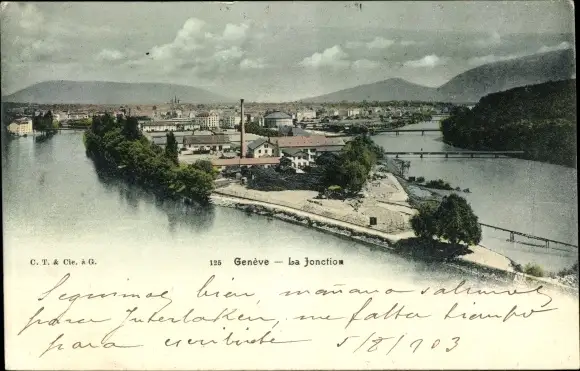 C. T. & Cie. à G. 125 Genève – La Jonction
Seguimos bien, mañana salimos
para Interlaken, me falta tiempo
para escribirte 5/8/903